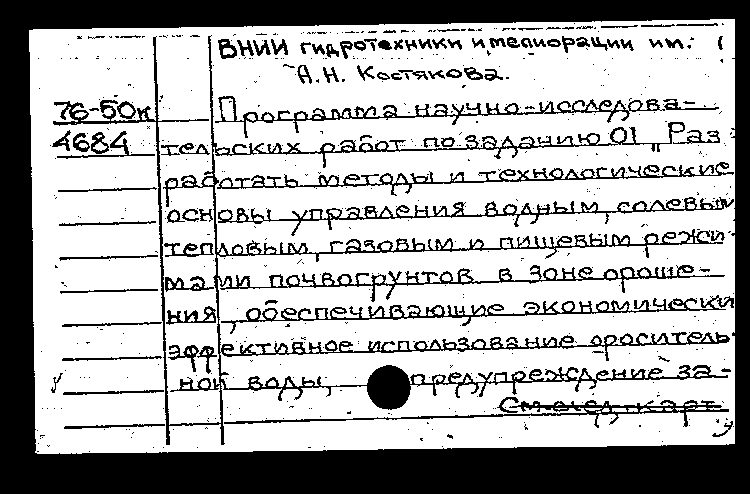 ВНИИ гидротехники и мелиорации им.
А.Н. Костякова.
76-50к Программа научно-исследова-
4684 тельских работ по заданию 01 „Раз-
работать методы и технологические
основы управления водным, солевым
тепловым, газовым и пищевым режи-
мами почвогрунтов в зоне ороше-
ния, обеспечивающие экономически
эффективное использование ороситель-
ной воды, предупреждение за-
См. след. карт.